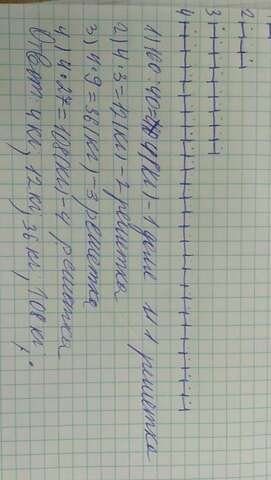 2
3
4
1) 160:40=4(кг)-1 доля и 1 решётка
2) 4·3=12(кг)-2 решётка
3) 4·9=36(кг)-3 решетка
4) 4·27=108(кг)-4 решетка
Ответ: 4кг, 12кг, 36кг, 108кг.